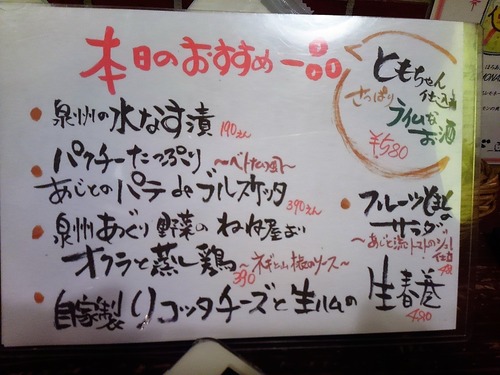 本日のおすすめ一品
ともちゃん
仕込み
さっぱり
ライムな
お酒
¥580
泉州の水なす漬
190えん
パクチーたっぷり
〜ベトナム風〜
あじとのパテ de ブルスケッタ
390えん
泉州あぐり野菜のねね屋より
オクラと蒸し鶏
〜ネギと山椒のソース〜
390
自家製リコッタチーズと生ハムの
生春巻
480
フルーツ
サラダ